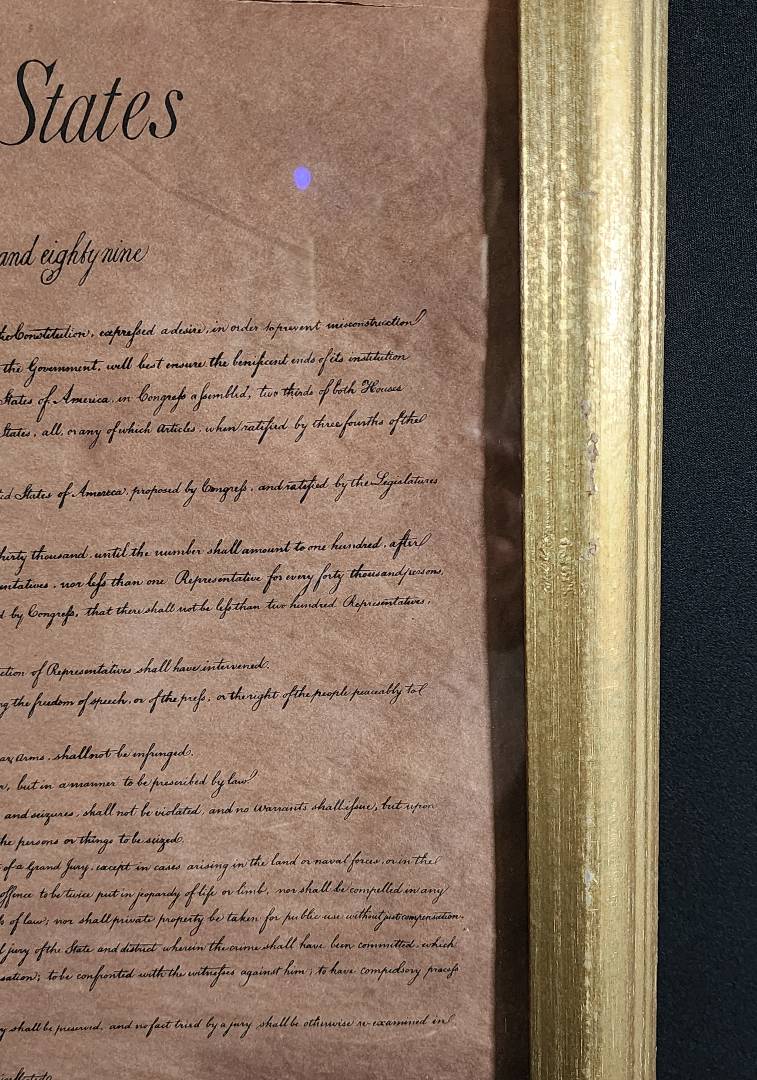 States
and eighty nine
the Constitution, expressed a desire, in order to prevent misconstruction
the Government, will best ensure the benificent ends of its institution
States of America, in Congress assembled, two thirds of both Houses
States, all, or any of which Articles, when ratified by three fourths of the
States of America, proposed by Congress, and ratified by the Legislatures
thirty thousand, until the number shall amount to one hundred, after
nor less than one Representative for every forty thousand persons,
by Congress, that there shall not be less than two hundred Representatives,
of Representatives shall have intervened.
the freedom of speech, or of the press, or the right of the people peaceably to
Arms, shall not be infringed.
but in a manner to be prescribed by law.
and seizures, shall not be violated, and no Warrants shall issue, but upon
the persons or things to be seized.
of a Grand Jury, except in cases arising in the land or naval forces, or in the
offence to be twice put in jeopardy of life or limb, nor shall be compelled in any
of law; nor shall private property be taken for public use without just compensation.
jury of the State and district wherein the crime shall have been committed, which
to be confronted with the witnesses against him; to have compulsory process
shall be preserved, and no fact tried by a jury, shall be otherwise re-examined in